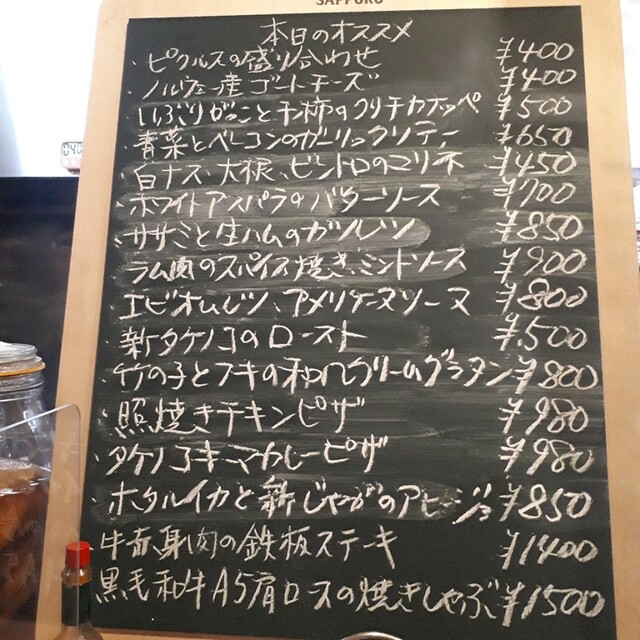 SAPPORO
本日のオススメ
・ピクルスの盛り合わせ ¥400
・ノルウェー産ゴートチーズ ¥400
・いぶりがっこと干柿のクリチカナッペ ¥500
・青菜とベーコンのガーリックソテー ¥650
・白ナス、大根、ビントロのマリネ ¥450
・ホワイトアスパラのバターソース ¥700
・ササミと生ハムのカツレツ ¥850
・ラム肉のスパイス焼き、ミントソース ¥900
・エビオムレツ、アメリケーヌソース ¥800
・新タケノコのロースト ¥500
・竹の子とフキの和风クリームグラタン ¥800
・照焼きチキンピザ ¥980
・タケノコキーマカレーピザ ¥980
・ホタルイカと新じゃがのアヒージョ ¥850
・牛赤身肉の鉄板ステーキ ¥1400
・黒毛和牛A5肩ロースの焼きしゃぶ ¥1500